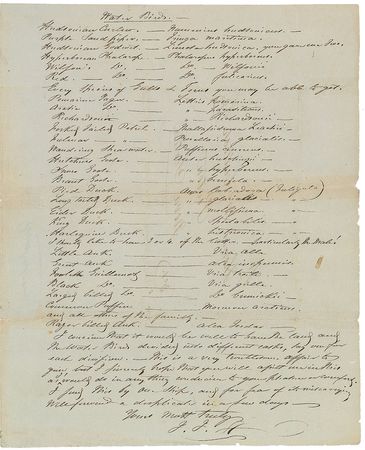 Water Birds.
Hudsonian Curlew. — Numenius hudsonicus. —
Purple Sandpiper. — Tringa maritima. —
Hudsonian Godwit. — Limosa hudsonica, you gave me two.
Hyperborean Phalarope. — Phalaropus hyperboreus.
Wilson's Do. — Do. — Wilsonii
Red. — Do. — Do. — fulicarius.
Every Species of Gulls & Terns you may be able to get.
Pomarine Jager. — Lestris Pomarina. —
Do. —
Richardsons — Richardsonii —
Forked tailed Petrel. — Thalassidroma Leachii —
Fulmar — Procellaria glacialis. —
Wandering Shearwater. — Puffinus cinereus. —
Hutchins Goose — Anser hutchinsii —
Snow Goose — hyperboreus. —
Brant Goose
Pied Duck
Long tailed Duck — glacialis
Eider Duck — mollissima
King Duck — Spectabilis —
Harlequin Duck — histrionica —
I should like to have 3 or 4 of the latter — particularly the Males!
Little Auk — Uria Alla
Great Auk — Alca impennis.
Foolish Guillemot — Uria troile. —
Black Do. — Uria grylle.
Large billed Do. — Do. Brunnichii —
Common Puffin — Mormon arcticus.
and all others of the family. —
Razor billed Auk. — Alca Torda —
I consider that it would be well to have the land and
the Water Birds divided into different casks, say one for
each division. — This is a very troublesome affair to
you, but I sincerely hope that you will assist me in this
as I would do in any thing conducive to your pleasure or comfort.
I send this by Mr. and for fear of its miscarrying
will forward a duplicate in a few days —
Yours Most Truly
J. J. A